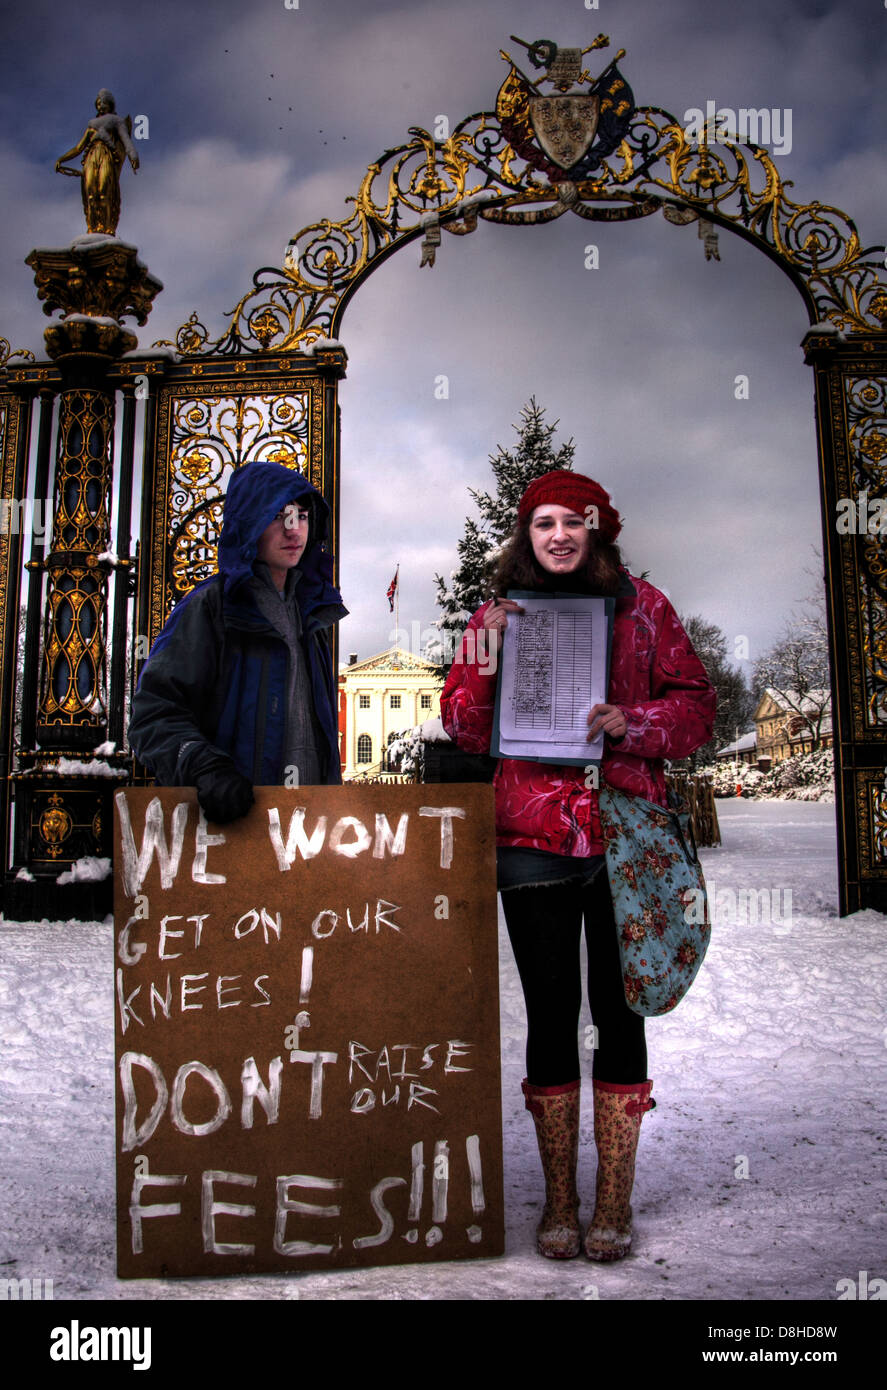 WE WONT
GET ON OUR
KNEES!
DON'T RAISE
OUR
FEES!!!
alamy
Image ID: D8HD8W
www.alamy.com